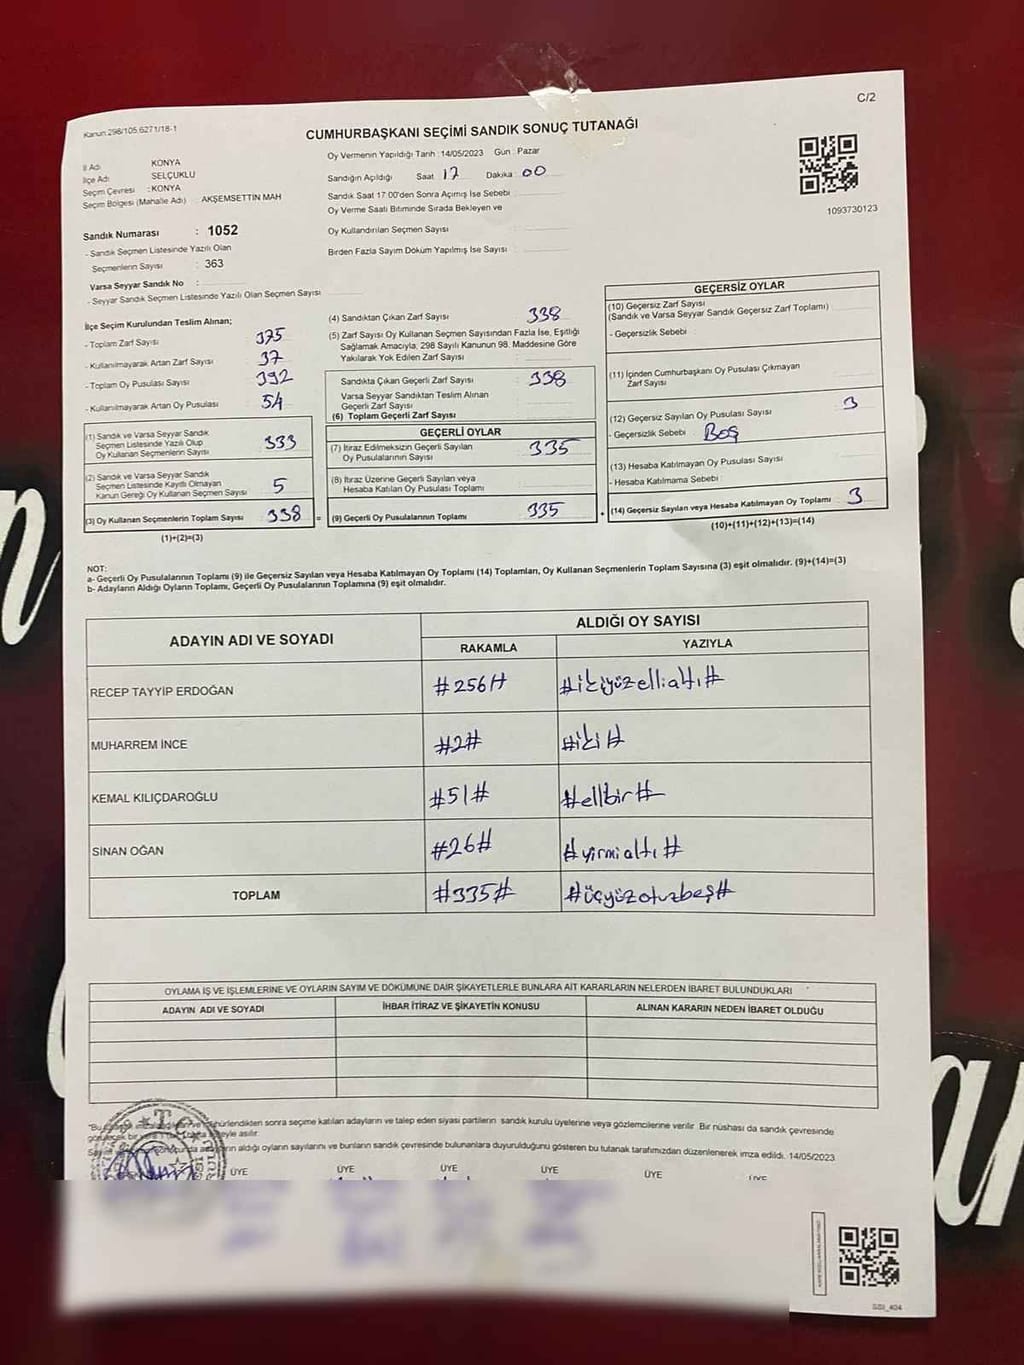 C/2
Kanun 298/105.6271/18-1
CUMHURBAŞKANI SEÇİMİ SANDIK SONUÇ TUTANAĞI
İl Adı KONYA
İlçe Adı SELÇUKLU
Seçim Çevresi : KONYA
Seçim Bölgesi (Mahalle Adı) AKŞEMSETTİN MAH
Sandık Numarası : 1052
- Sandık Seçmen Listesinde Yazılı Olan
Seçmenlerin Sayısı : 363
Varsa Seyyar Sandık No :
- Seyyar Sandık Seçmen Listesinde Yazılı Olan Seçmen Sayısı
Oy Vermenin Yapıldığı Tarih : 14/05/2023 Gün : Pazar
Sandığın Açıldığı Saat 17 Dakika : 00
Sandık Saat 17:00'den Sonra Açımış İse Sebebi
Oy Verme Saati Bitiminde Sırada Bekleyen ve
Oy Kullandırılan Seçmen Sayısı
Birden Fazla Sayım Döküm Yapılmış İse Sayısı
1093730123
İlçe Seçim Kurulundan Teslim Alınan;
- Toplam Zarf Sayısı 375
- Kullanılmayarak Artan Zarf Sayısı 37
- Toplam Oy Pusulası Sayısı 392
- Kullanılmayarak Artan Oy Pusulası 54
(1) Sandık ve Varsa Seyyar Sandık
Seçmen Listesinde Yazılı Olup
Oy Kullanan Seçmenlerin Sayısı 333
(2) Sandık ve Varsa Seyyar Sandık
Seçmen Listesinde Kayıtlı Olmayan
Kanun Gereği Oy Kullanan Seçmen Sayısı 5
(3) Oy Kullanan Seçmenlerin Toplam Sayısı 338 =
(1)+(2)=(3)
(4) Sandıktan Çıkan Zarf Sayısı : 338
(5) Zarf Sayısı Oy Kullanan Seçmen Sayısından Fazla İse, Eşitliği
Sağlamak Amacıyla; 298 Sayılı Kanunun 98. Maddesine Göre
Yakılarak Yok Edilen Zarf Sayısı
Sandıkta Çıkan Geçerli Zarf Sayısı : 338
Varsa Seyyar Sandıktan Teslim Alınan
Geçerli Zarf Sayısı
(6) Toplam Geçerli Zarf Sayısı
GEÇERLİ OYLAR
(7) İtiraz Edilmeksizin Geçerli Sayılan
Oy Pusulalarının Sayısı 335
(8) İtiraz Üzerine Geçerli Sayılan veya
Hesaba Katılan Oy Pusulası Toplamı
(9) Geçerli Oy Pusulalarının Toplamı 335 +
GEÇERSİZ OYLAR
(10) Geçersiz Zarf Sayısı
(Sandık ve Varsa Seyyar Sandık Geçersiz Zarf Toplamı)
- Geçersizlik Sebebi
(11) İçinden Cumhurbaşkanı Oy Pusulası Çıkmayan
Zarf Sayısı
(12) Geçersiz Sayılan Oy Pusulası Sayısı 3
- Geçersizlik Sebebi Boş
(13) Hesaba Katılmayan Oy Pusulası Sayısı
- Hesaba Katılmama Sebebi
(14) Geçersiz Sayılan veya Hesaba Katılmayan Oy Toplamı 3
(10)+(11)+(12)+(13)=(14)
NOT:
a- Geçerli Oy Pusulalarının Toplamı (9) ile Geçersiz Sayılan veya Hesaba Katılmayan Oy Toplamı (14) Toplamları, Oy Kullanan Seçmenlerin Toplam Sayısına (3) eşit olmalıdır. (9)+(14)=(3)
b- Adayların Aldığı Oyların Toplamı, Geçerli Oy Pusulalarının Toplamına (9) eşit olmalıdır.
ADAYIN ADI VE SOYADI ALDIĞI OY SAYISI
RAKAMLA YAZIYLA
RECEP TAYYİP ERDOĞAN #256# #ikiyüzellialtı#
MUHARREM İNCE #2# #iki#
KEMAL KILIÇDAROĞLU #51# #ellbir#
SİNAN OĞAN #26# #yirmialtı#
TOPLAM #335# #üçyüzotuzbeş#
OYLAMA İŞ VE İŞLEMLERİNE VE OYLARIN SAYIM VE DÖKÜMÜNE DAİR ŞİKAYETLERLE BUNLARA AİT KARARLARIN NELERDEN İBARET BULUNDUKLARI
ADAYIN ADI VE SOYADI İHBAR İTİRAZ VE ŞİKAYETİN KONUSU ALINAN KARARIN NEDEN İBARET OLDUĞU
sonra seçime katılan adayların ve talep eden siyasi partilerin sandık kurulu üyelerine veya gözlemcilerine verilir. Bir nüshası da sandık çevresinde
aldığı oyların sayılarını ve bunların sandık çevresinde bulunanlara duyurulduğunu gösteren bu tutanak tarafımızdan düzenlenerek imza edildi. 14/05/2023
ÜYE ÜYE ÜYE ÜYE ÜYE ÜYE